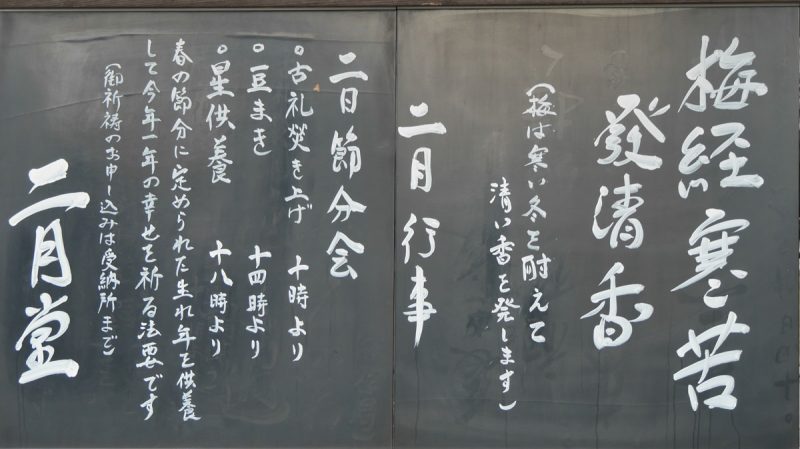 梅経寒苦
發清香
(梅は寒い冬を耐えて
清い香を発します)
二月行事
二日節分会
○古札焚き上げ 十時より
○豆まき 十四時より
○星供養 十八時より
春の節分に定められた生れ年を供養
して今年一年の幸せを祈る法要です
(御祈祷のお申し込みは受納所まで)
二月堂